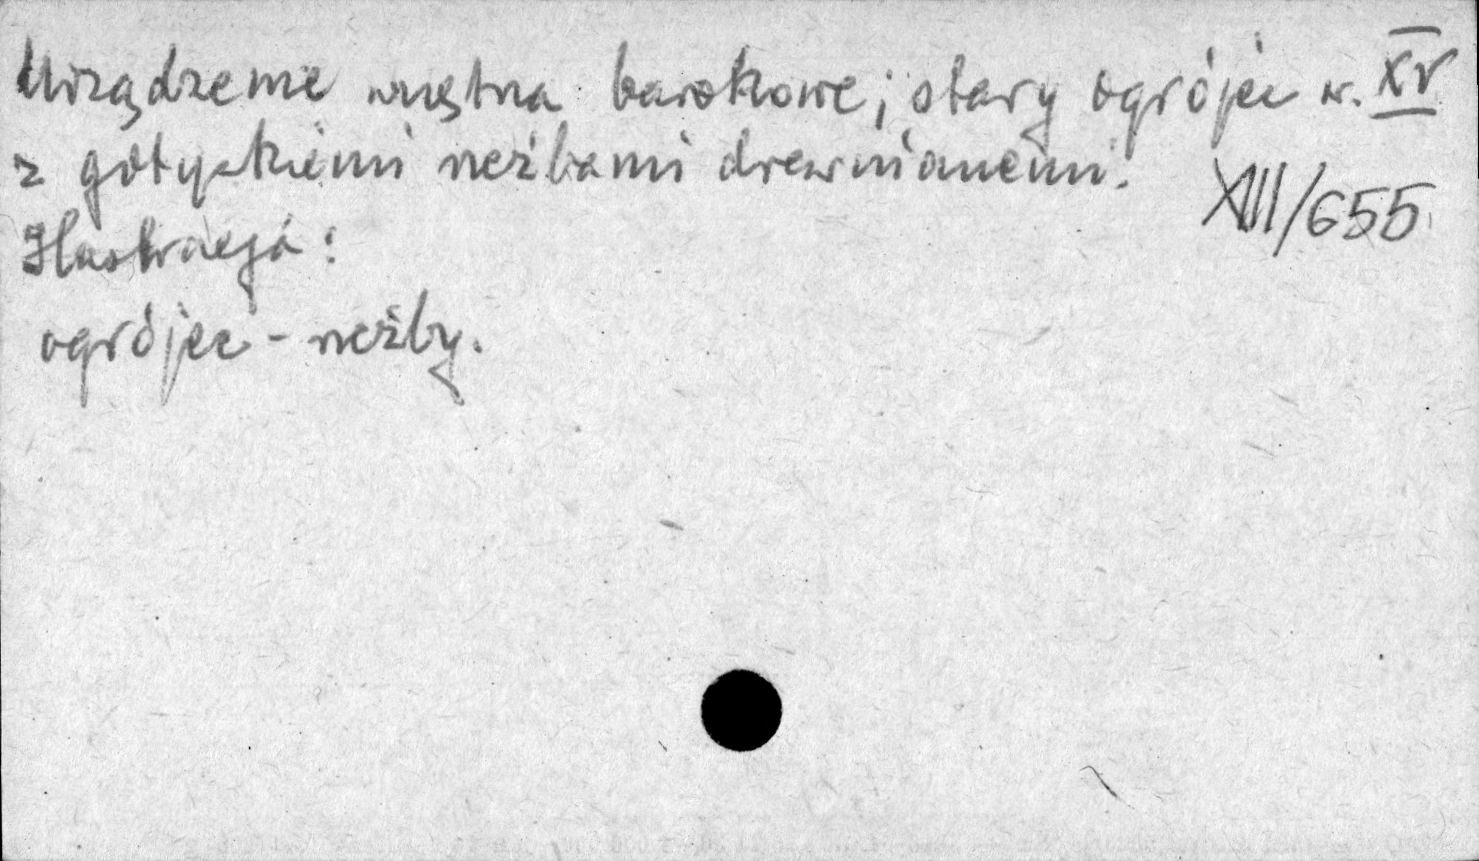 Urządzenie wnętrza barokowe; stary ogrójec w. XV
z gotyckiemi rzeźbami drewnianemi.
XIII/655
Ilustracja:
ogrójec - rzeźby.